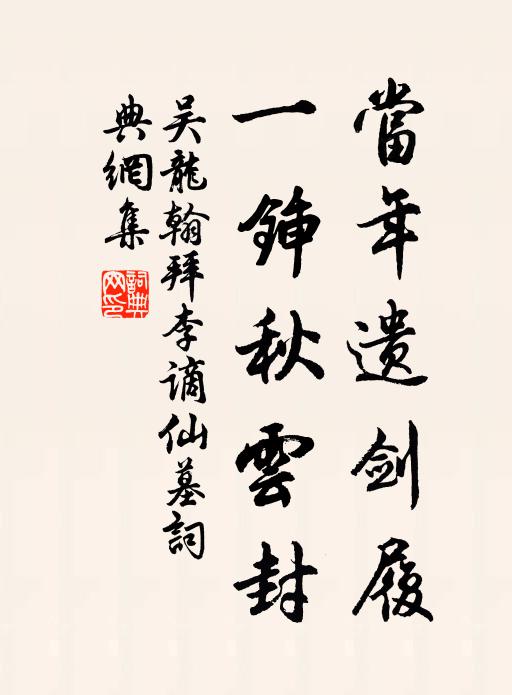 當年遺劍履
一鍤秋雲封
吴龍翰拜李謫仙墓詞
典網集
詞典网印